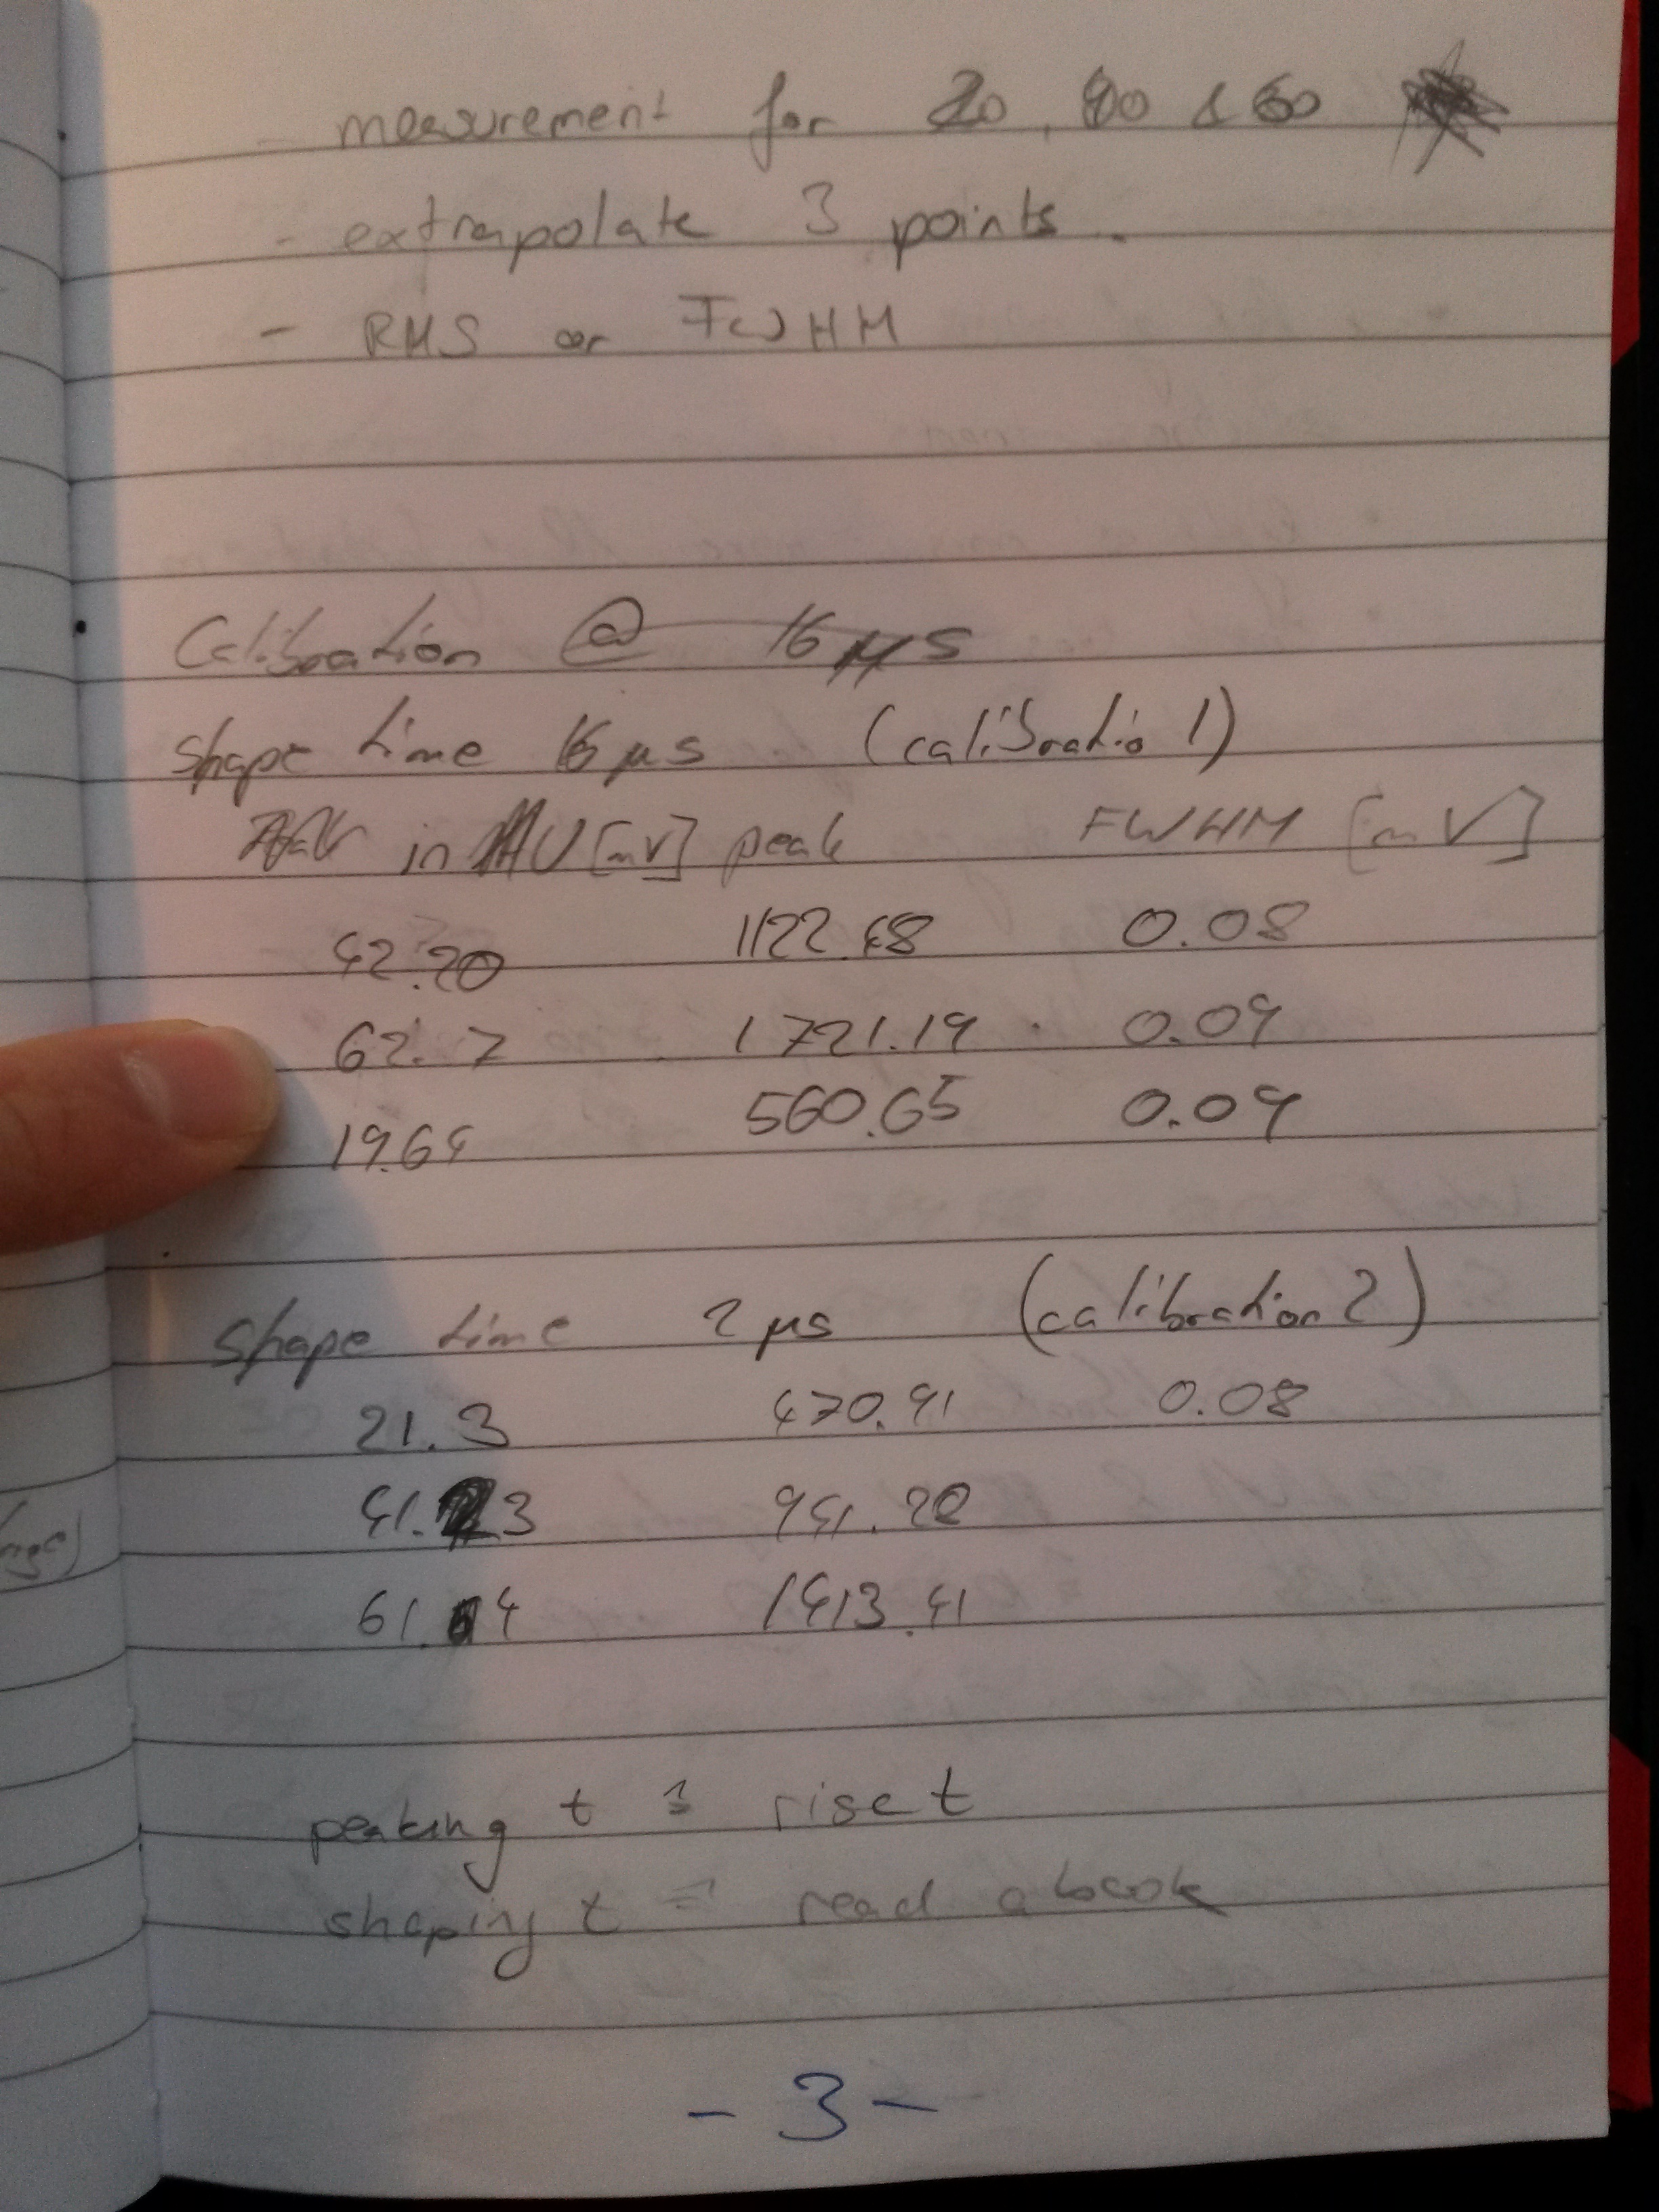 - measurement for 20, 40 & 60
- extrapolate 3 points.
- RMS or FWHM
Calibration @ 16 μs
shape time 16 μs (calibratio 1)
in [mV] peak FWHM [mV]
42.20 1122.48 0.08
62.7 1721.19 0.09
19.64 560.65 0.09
shape time 2 μs (calibration 2)
21.3 470.91 0.08
41.3 941.20
61.4 1413.41
peaking t = rise t
shaping t = read a book
- 3 -